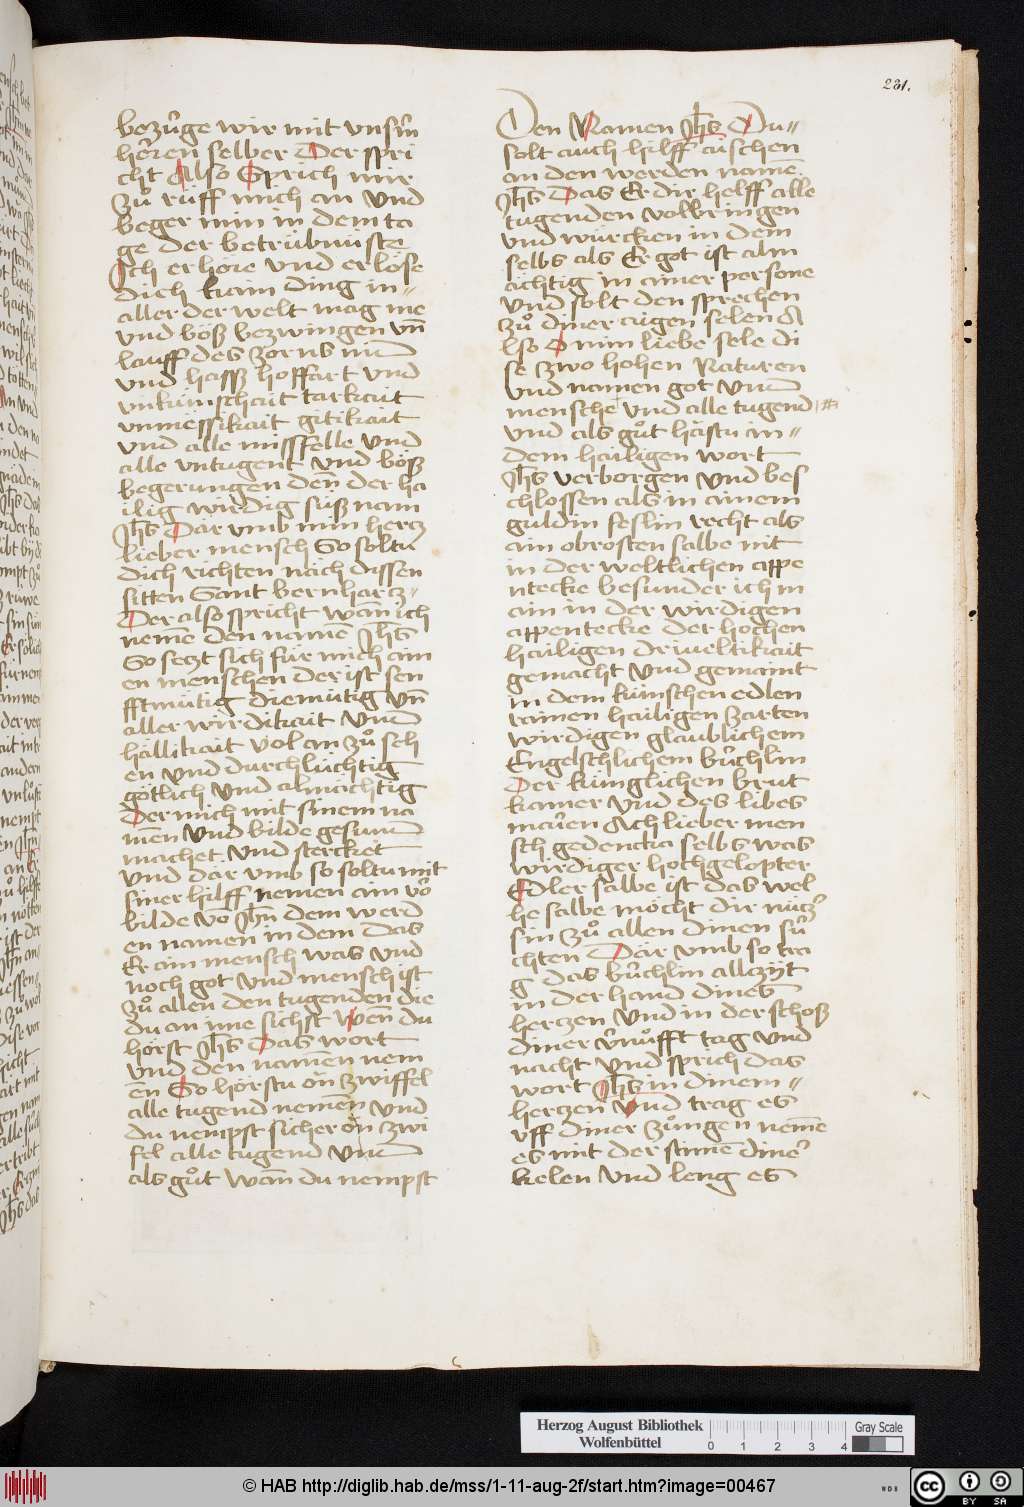 231.
bezuͤge wir mit vnsm̄
heren selber Der spri
cht Also Sprich mir
zuͦ ruͤff mich an Vnd
beger min in dem ta
ge der betruͤbnuͤste
Ich erhoͤre Vnd erloͤse
dich kain ding in=
aller der welt mag me
Vnd boͤß bezwingen vn̄
lauff des zorns nun
Vnd hassz hoffart Vnd
vnkuͤnschait karkait
vnmessikait gitikait
Vnd alle missfelle Vnd
alle vntugent Vnd boͤß
begerungen den̄ der ha
ilig wirdig suͤß nam
Jhs Dar vmb min hercz
lieber mensch So soltu
dich richten nach dissen
sitten Sant bernharcz=
Der also spricht wan̄ ich
neme den name Jhs
So setzt sich fuͤr mich ain
en menschen der ist sen
fftmuͤtig diemuͤtig vn̄
aller wirdikait Vnd
haͤllikait vol an zuͦ seh
en Vnd durchluͤchtig
goͤtlich Vnd almaͤchtig
Der mich mit sinem na
men Vnd bilde gesunt
machet Vnd stercket
Vnd dar vmb so soltu mit
siner hilff nemen ain vor
bilde vo Jhn̄ dem werd
en namen in dem das
Er ain mensch was Vnd
noch got Vnd mensch ist
zuͦ allen den tugenden die
du an ime sichst Wen du
hoͤrst Jhs Das wort
Vnd den namen nem
en So hoͤrstu on̄ zwiffel
alle tugend nemen Vnd
du nempst sicher on̄ zwi
fel alle tugend Vnd
als guͦt Wan̄ du nempst
Den Namen Jhs Du=
solt auch hilff aischen
an den werden name
Jhs Das Er dir helff alle
tugenden volbringen
Vnd wuͤrcken in dem
selbs als Er got ist alm
aͤchtig in ainer persone
Vnd solt den sprechen
zuͦ diner aigen selen A
lso O min liebe sele di
se zwo hohen Naturen
Vnd namen got Vnd
mensche Vnd alle tugend
Vnd als guͦt haͤstu in=
dem hailigen wort
Jhs verborgen Vnd bes
chlossen als in ainem
guldin feslin recht als
ain obrosten salbe nit
in der weltlichen appe
ntecke besunder ich m
ain in der wirdigen
appentecke der hochen
hailigen driueltikait
gemacht Vnd gemaint
in dem kuͤnschen edlen
rainen hailigen zarten
wirdigen glaublichem
Engelschlichem buͤchlin
Der kuͤnglichen brut
kamer Vnd des libes
maren Ach lieber men
sch gedencka selbs was
wirdiger hochgelopter
Edler salbe ist das wel
he salbe moͤcht dir nuͤtz
sin zuͦ allen dinen suͤ
chten Dar vmb so tra
g das buͤchlin allzyt
in der hand dines
herczen Vnd in der schoß
diner vnuͦfft tag Vnd
nacht Vnd sprich das
wort Jhs in dinem=
herczen Vnd trag es
vff diner zungen neme
es mit der stime diner
kelen Vnd leng es
Herzog August Bibliothek
Wolfenbüttel
0 1 2 3 4
Gray Scale
© HAB http://diglib.hab.de/mss/1-11-aug-2f/start.htm?image=00467
WDB
cc BY SA